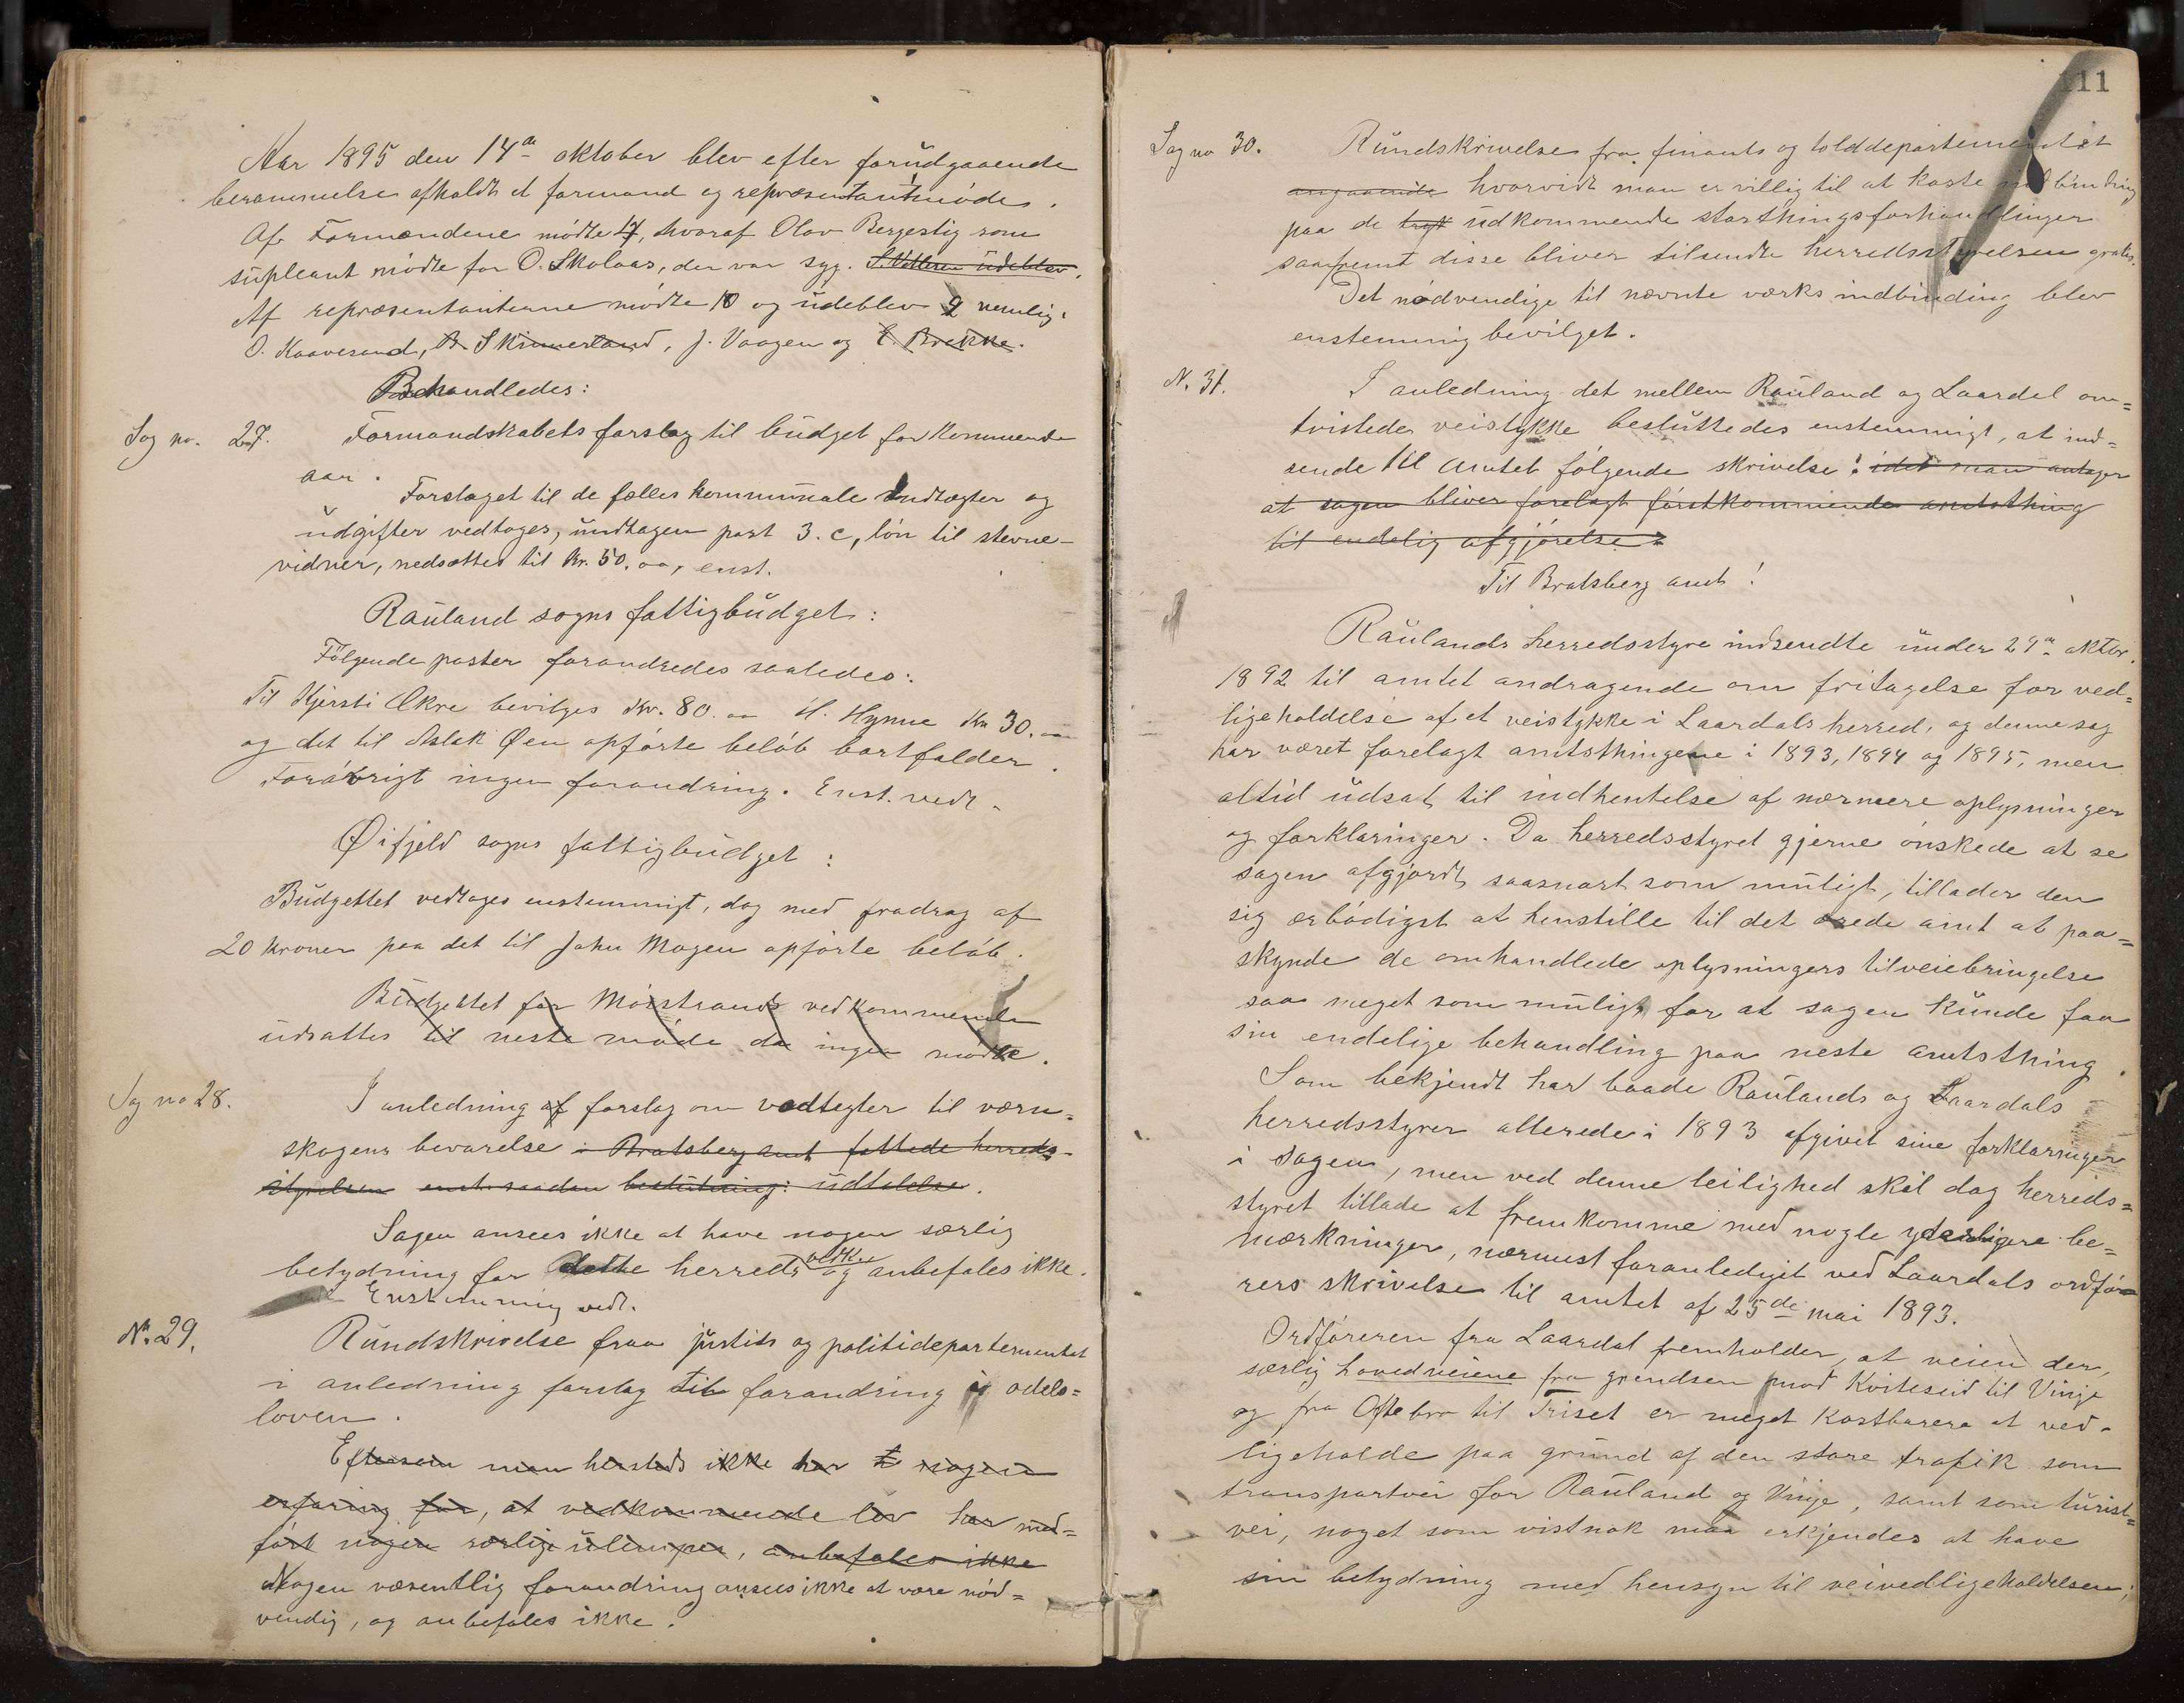 Aar 1895 den 14de oktober blev efter forudgaaende
berammelse afholdt et formand og repræsentantmøde.
Af Formændene mødte 4, hvoraf Olav Bergestig som
supleant mødte for O. Skolaas, der var syg. udeblev.
Af repræsentanterne mødte 10 og udeblev 2 nemlig:
O. Kaavesand, B. Skinnerland, J. Vaagen og Brekke.
Behandledes:
Sag no. 27. Formandskabets forslag til budget for kommende
aar.
Forslaget til de fælles kommunale Indtægter og
udgifter vedtoges, undtagen post 3. c, løn til stevne-
vidner, nedsættes til kr. 50.00, enst.
Rauland sogns fattigbudget:
Følgende poster forandredes saaledes:
Til Kjersti Økre bevilges Kr. 80.00 H. Hynne Kr 30.00
og det til Aslak Øen opførte beløb bortfalder.
Forøvrigt ingen forandring. Enst. vedt.
Øifjeld sogns fattigbudget:
Budgettet vedtoges enstemmigt, dog med fradrag af
20 kroner paa det til John Mogen opførte beløb.
Budgettet for Møistrands vedkommende
udsattes til neste møde da ingen mødte.
Sag no 28. I anledning af forslag om vedtegter til værn-
skogens bevarelse i Bratsberg amt fattede herreds-
styrelsen enst. saadan beslutning: udtalelse.
Sagen ansees ikke at have nogen særlig
betydning for dette herreds vedk. og anbefales ikke.
Enstemmig vedt.
No. 29. Rundskrivelse fraa justits og politidepartementet
i anledning forslag til forandring i odels-
loven.
Eftersom man hersteds ikke har nogen
erfaring for, at vedkommende lov har med-
ført nogen særlige ulemper, anbefales ikke
Nogen væsentlig forandring ansees ikke at være nød-
vendig, og anbefales ikke.
111
Sag no 30. Rundskrivelse fra finants og tolddepartementet
angaaende hvorvidt man er villig til at koste indbinding
paa de trykt udkommende storthingsforhandlinger
saafremt disse bliver tilsendte herredsstyrelsen gratis.
Det nødvendige til nævnte værks indbinding blev
enstemmig bevilget.
N. 31. I anledning det mellem Rauland og Laardal om-
tvistede veistykke besluttedes enstemmigt, at ind-
sende til Amtet følgende skrivelse: idet man antager
at sagen bliver forelagt førstkommende amtsthing
til endelig afgjørelse
Til Bratsberg amt!
Raulands herredsstyre indsendte under 29de oktbr.
1892 til amtet andragende om fritagelse for ved-
ligeholdelse af et veistykke i Laardals herred, og denne sag
har været forelagt amtsthingene i 1893, 1894 og 1895, men
altid udsat til indhentelse af nærmere oplysninger
og forklaringer. Da herredsstyret gjerne ønskede at se
sagen afgjordt saasnart som muligt, tillader den
sig ærbødigst at henstille til det ærede amt at paa-
skynde de omhandlede oplysningers tilveiebringelse
saa meget som muligt for at sagen kunde faa
sin endelige behandling paa neste amtsthing.
Som bekjendt har baade Raulands og Laardals
herredsstyrer allerede i 1893 afgivet sine forklaringer
i sagen, men ved denne leilighed skal dog herreds-
styret tillade at fremkomme med nogle yderligere be-
mærkninger, nærmest foranlediget ved Laardals ordfø-
rers skrivelse til amtet af 25de mai 1893.
Ordføreren fra Laardal fremholder, at veien der,
særlig hovedveiene fra grendsen mod Kviteseid til Vinje
og fra Ofte bro til Triset er meget kostbarere at ved-
ligeholde paa grund af den store trafik som
transportvei for Rauland og Vinje, samt som turist-
vei, noget som vistnok maa erkjendes at have
sin betydning med hensyn til veivedligeholdelsen;